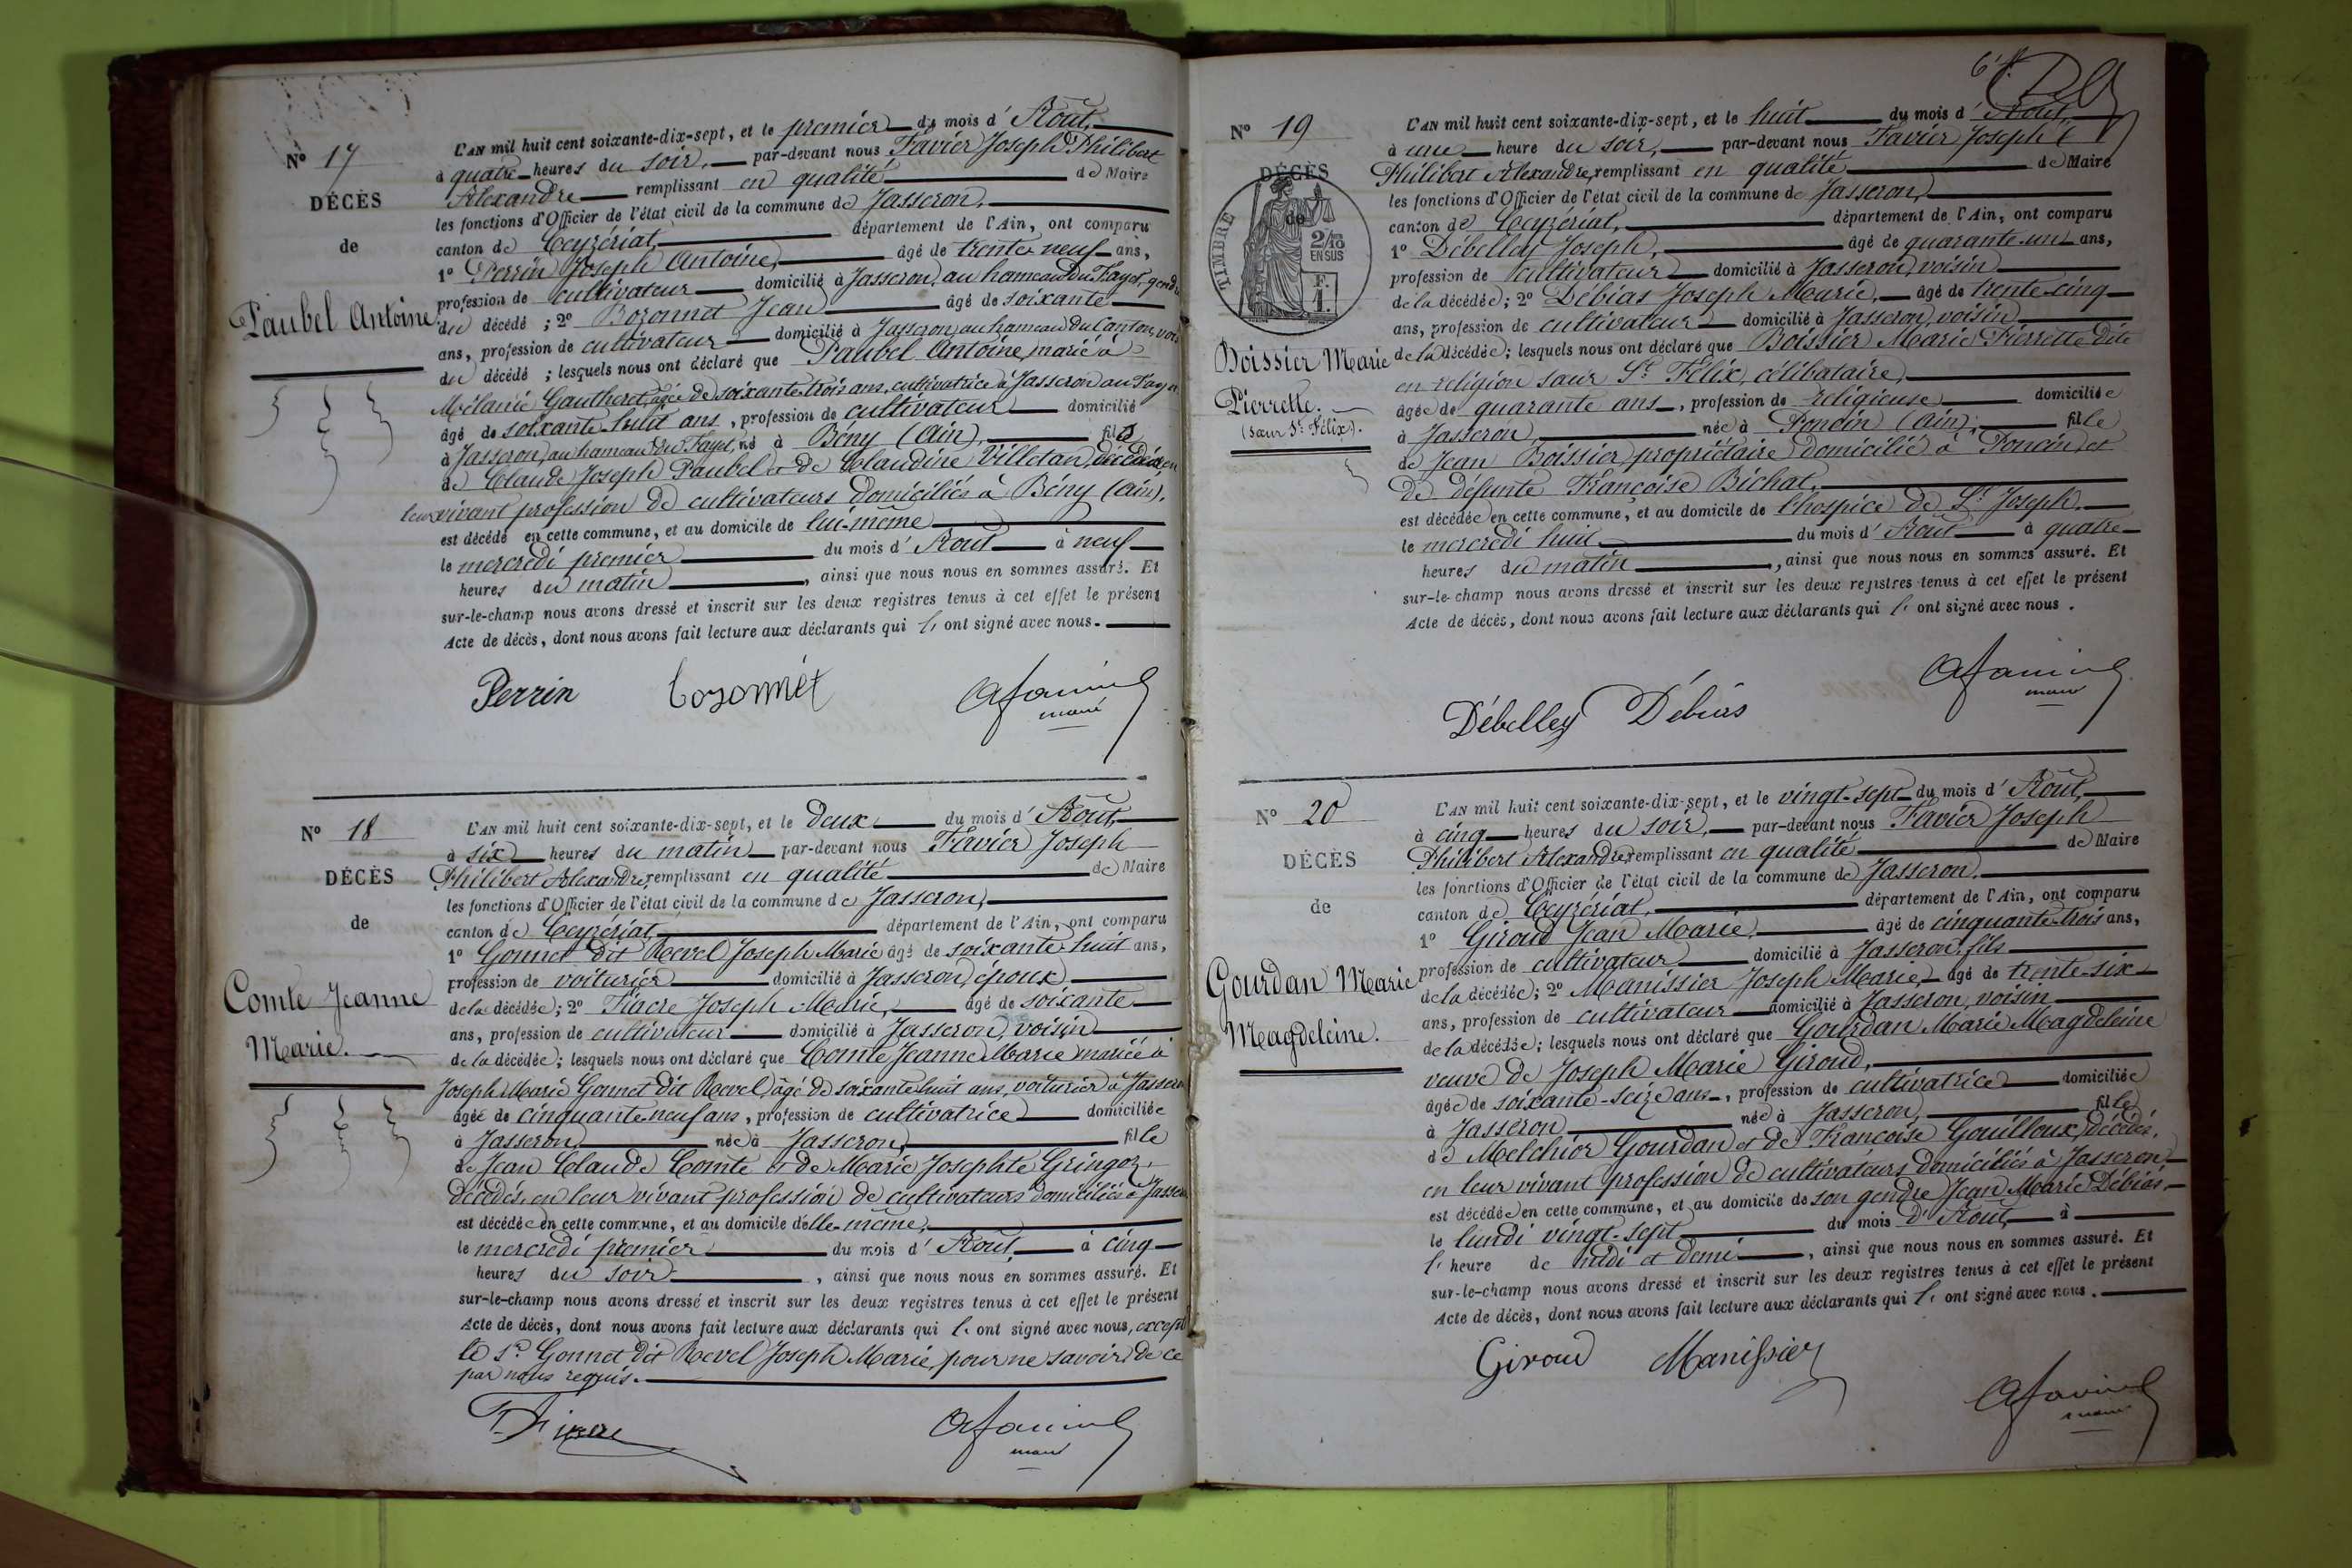 N° 17
DÉCÈS
de
Paubel Antoine
L'AN mil huit cent soixante-dix-sept, et le premier du mois d'Août,
à quatre heures du soir, par-devant nous Favier Joseph Philibert
Alexandre remplissant en qualité de Maire
les fonctions d'Officier de l'état civil de la commune de Jasseron,
canton de Ceyzériat, département de l'Ain, ont comparu
1° Perrin Joseph Antoine, âgé de trente neuf ans,
profession de cultivateur domicilié à Jasseron, au hameau du Fayet, gendre
du décédé ; 2° Bozonnet Jean âgé de soixante
ans, profession de cultivateur domicilié à Jasseron, au hameau du Canton, vois
du décédé ; lesquels nous ont déclaré que Paubel Antoine, marié à
Mélanie Gautheret, âgée de soixante trois ans, cultivatrice à Jasseron au Fayet
âgé de soixante huit ans, profession de cultivateur domicilié
à Jasseron, au hameau du Fayet, né à Bény (Ain), fils
de Claude Joseph Paubel et de Claudine Villetan, décédés, en
leur vivant profession de cultivateurs domiciliés à Bény (Ain),
est décédé en cette commune, et au domicile de lui-même
le mercredi premier du mois d'Août à neuf
heures du matin, ainsi que nous nous en sommes assuré. Et
sur-le-champ nous avons dressé et inscrit sur les deux registres tenus à cet effet le présent
Acte de décès, dont nous avons fait lecture aux déclarants qui l' ont signé avec nous.
Perrin Bozonnet Afavier
maire
N° 18
DÉCÈS
de
Comte Jeanne
Marie.
L'AN mil huit cent soixante-dix-sept, et le deux du mois d'Août,
à six heures du matin par-devant nous Favier Joseph
Philibert Alexandre, remplissant en qualité de Maire
les fonctions d'Officier de l'état civil de la commune de Jasseron,
canton de Ceyzériat, département de l'Ain, ont comparu
1° Gonnet dit Revel Joseph Marie âgé de soixante huit ans,
profession de voiturier domicilié à Jasseron, époux
de la décédée; 2° Fiacre Joseph Marie, âgé de soixante
ans, profession de cultivateur domicilié à Jasseron, voisin
de la décédée; lesquels nous ont déclaré que Comte Jeanne Marie mariée à
Joseph Marie Gonnet dit Revel, âgé de soixante huit ans, voiturier à Jasseron
âgée de cinquante neuf ans, profession de cultivatrice domiciliée
à Jasseron, née à Jasseron, fille
de Jean Claude Comte et de Marie Josephte Gringoz,
décédés, en leur vivant profession de cultivateurs domiciliés à Jasseron
est décédée en cette commune, et au domicile d'elle-même,
le mercredi premier du mois d'Août, à cinq
heures du soir, ainsi que nous nous en sommes assuré. Et
sur-le-champ nous avons dressé et inscrit sur les deux registres tenus à cet effet le présent
Acte de décès, dont nous avons fait lecture aux déclarants qui l' ont signé avec nous, except
le Sr Gonnet dit Revel Joseph Marie, pour ne savoir, de ce
par nous requis.
Fiacre Afavier
maire
6
N° 19
DÉCÈS
de
TIMBRE
2/10
EN SUS
F.
1.
Boissier Marie
Pierrette.
(Sœur St Félix).
L'AN mil huit cent soixante-dix-sept, et le huit du mois d'Août,
à une heure du soir, par-devant nous Favier Joseph
Philibert Alexandre, remplissant en qualité de Maire
les fonctions d'Officier de l'état civil de la commune de Jasseron,
canton de Ceyzériat, département de l'Ain, ont comparu
1° Débelley Joseph, âgé de quarante-un ans,
profession de cultivateur domicilié à Jasseron, voisin
de la décédée; 2° Débias Joseph Marie, âgé de trente-cinq
ans, profession de cultivateur domicilié à Jasseron, voisin
de la décédée; lesquels nous ont déclaré que Boissier Marie Pierrette dite
en religion sœur St Félix, célibataire,
âgée de quarante ans, profession de religieuse domiciliée
à Jasseron, née à Poncin (Ain), fille
de Jean Boissier, propriétaire domicilié à Poncin, et
de défunte Françoise Bichat,
est décédée en cette commune, et au domicile de l'hospice de St Joseph,
le mercredi huit du mois d'Août à quatre
heures du matin, ainsi que nous nous en sommes assuré. Et
sur-le-champ nous avons dressé et inscrit sur les deux registres tenus à cet effet le présent
Acte de décès, dont nous avons fait lecture aux déclarants qui l' ont signé avec nous.
Débelley Débias Afavier
maire
N° 20
DÉCÈS
de
Gourdan Marie
Magdeleine.
L'AN mil huit cent soixante-dix-sept, et le vingt-sept du mois d'Août,
à cinq heures du soir, par-devant nous Favier Joseph
Philibert Alexandre, remplissant en qualité de Maire
les fonctions d'Officier de l'état civil de la commune de Jasseron,
canton de Ceyzériat, département de l'Ain, ont comparu
1° Giroud Jean Marie, âgé de cinquante-trois ans,
profession de cultivateur domicilié à Jasseron, fils
de la décédée; 2° Manissier Joseph Marie, âgé de trente-six
ans, profession de cultivateur domicilié à Jasseron, voisin
de la décédée; lesquels nous ont déclaré que Gourdan Marie Magdeleine
veuve de Joseph Marie Giroud,
âgée de soixante-seize ans, profession de cultivatrice domiciliée
à Jasseron née à Jasseron, fille
de Melchior Gourdan et de Françoise Gouilloux, décédés,
en leur vivant profession de cultivateurs domiciliés à Jasseron
est décédée en cette commune, et au domicile de son gendre Jean Marie Débias,
le lundi vingt-sept du mois d'Août, à
l' heure de midi et demi, ainsi que nous nous en sommes assuré. Et
sur-le-champ nous avons dressé et inscrit sur les deux registres tenus à cet effet le présent
Acte de décès, dont nous avons fait lecture aux déclarants qui l' ont signé avec nous.
Giroud Manissier Afavier
maire